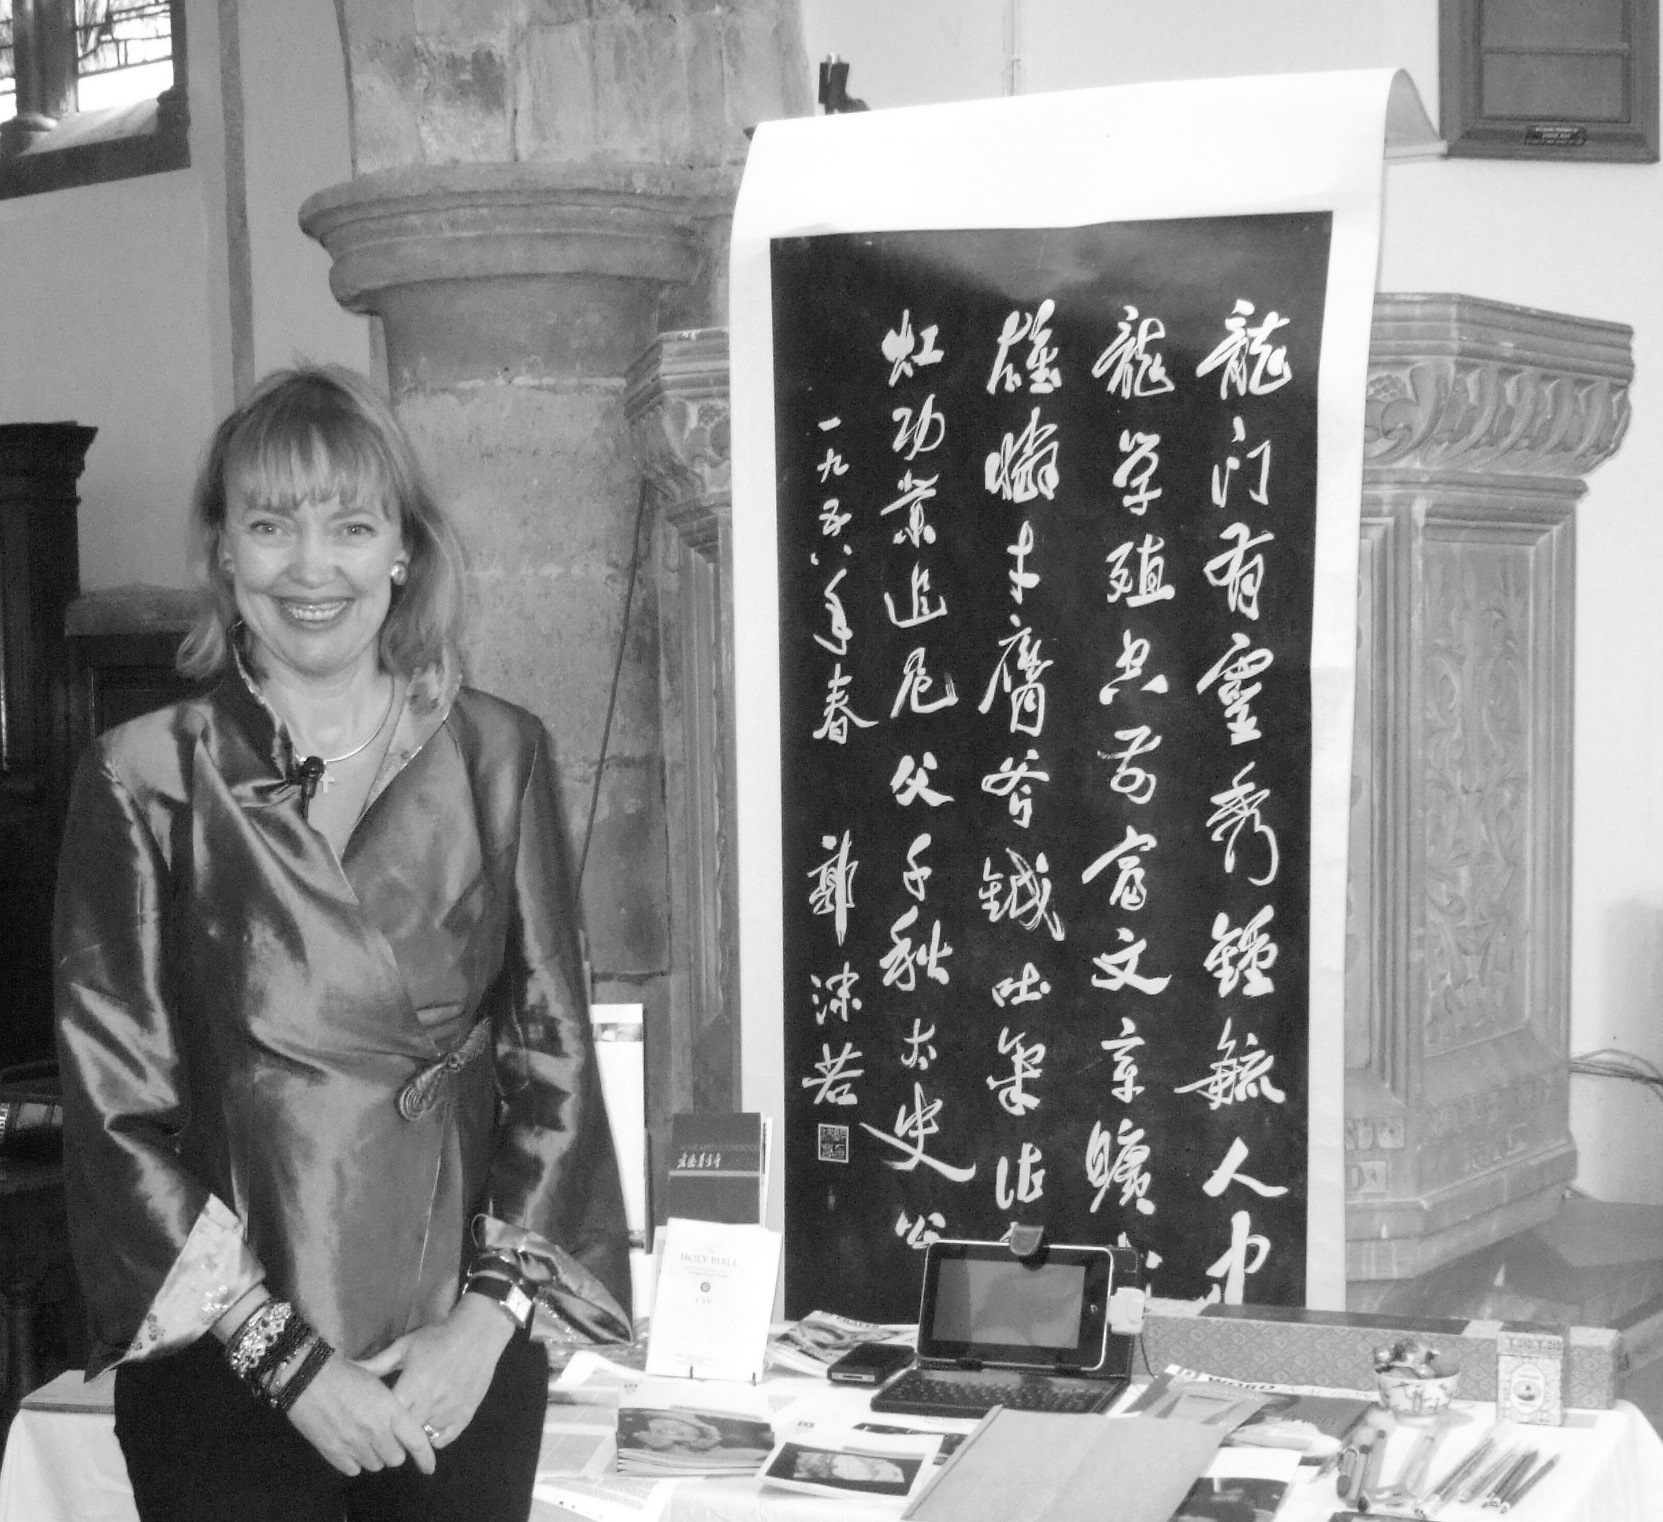 龍门有靈秀鍾毓人中
龍学殖空前富文章曠
雄憐才膺斧鉞吐氣作
虹功業追尼父千秋太史公
一九五八年春 郭沫若
HOLY BIBLE
PRAYER
WORD